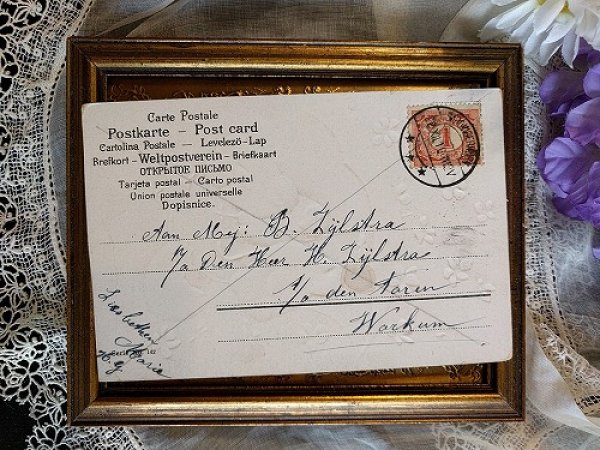 Carte Postale
Postkarte – Post card
Cartolina Postale – Levelező-Lap
Brefkort - Weltpostverein - Briefkaart
ОТКРЫТОЕ ПИСЬМО
Tarjeta postal – Carto postal
Union postale universelle
Dopisnice.
1
Aan Mej: B. Zijlstra
p/a Den Heer H. Zijlstra
a/d den Toren
Workum
Maria